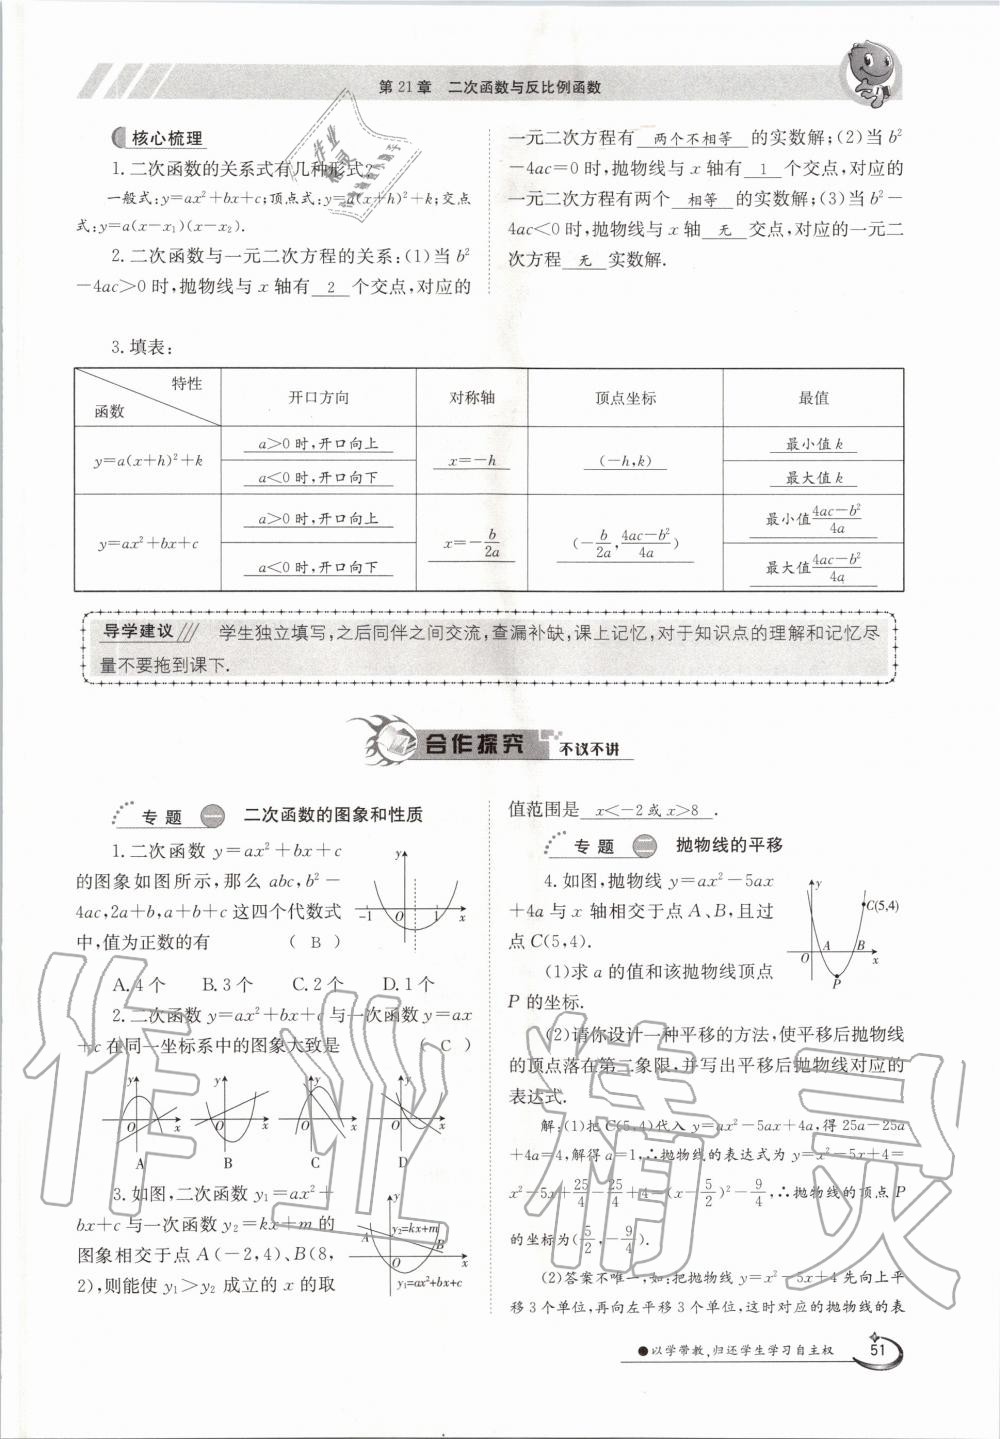 第21章 二次函数与反比例函数
核心梳理
1.二次函数的关系式有几种形式?
一般式:y=ax²+bx+c;顶点式:y=a(x+h)²+k;交点
式:y=a(x-x₁)(x-x₂).
2.二次函数与一元二次方程的关系:(1)当 b²
-4ac>0时,抛物线与 x 轴有 2 个交点,对应的
一元二次方程有 两个不相等 的实数解;(2)当 b²
-4ac=0时,抛物线与 x 轴有 1 个交点,对应的
一元二次方程有两个 相等 的实数解;(3)当 b²-
4ac<0时,抛物线与 x 轴 无 交点,对应的一元二
次方程 无 实数解.
3.填表:
特性
函数
开口方向
对称轴
顶点坐标
最值
y=a(x+h)²+k
a>0时,开口向上
a<0时,开口向下
x=-h
(-h,k)
最小值 k
最大值 k
y=ax²+bx+c
a>0时,开口向上
a<0时,开口向下
x=-b/2a
(-b/2a,4ac-b²/4a)
最小值4ac-b²/4a
最大值4ac-b²/4a
导学建议 学生独立填写,之后同伴之间交流,查漏补缺,课上记忆,对于知识点的理解和记忆尽
量不要拖到课下.
合作探究 不议不讲
专题 一 二次函数的图象和性质
1.二次函数 y=ax²+bx+c
的图象如图所示,那么 abc,b²-
4ac,2a+b,a+b+c 这四个代数式
中,值为正数的有 ( B )
y
-1 O 1 x
A.4个 B.3个 C.2个 D.1个
2.二次函数 y=ax²+bx+c 与一次函数 y=ax
+c 在同一坐标系中的图象大致是 ( C )
y y y y
O x O x O x O x
A B C D
3.如图,二次函数 y₁=ax²+
bx+c 与一次函数 y₂=kx+m 的
图象相交于点 A(-2,4)、B(8,
2),则能使 y₁>y₂ 成立的 x 的取
y
y₂=kx+m
A B
O x
y₁=ax²+bx+c
值范围是 x<-2或x>8 .
专题 二 抛物线的平移
4.如图,抛物线 y=ax²-5ax
+4a 与 x 轴相交于点 A、B,且过
点 C(5,4).
(1)求 a 的值和该抛物线顶点
P 的坐标.
y
C(5,4)
O A B x
P
(2)请你设计一种平移的方法,使平移后抛物线
的顶点落在第二象限,并写出平移后抛物线对应的
表达式.
解:(1)把C(5,4)代入 y=ax²-5ax+4a,得 25a-25a
+4a=4,解得 a=1,∴抛物线的表达式为 y=x²-5x+4=
x²-5x+25/4-25/4+4=(x-5/2)²-9/4,∴抛物线的顶点 P
的坐标为(5/2,-9/4).
(2)答案不唯一,如:把抛物线 y=x²-5x+4 先向上平
移3个单位,再向左平移3个单位,这时对应的抛物线的表
●以学带教,归还学生学习自主权
51
作业精灵